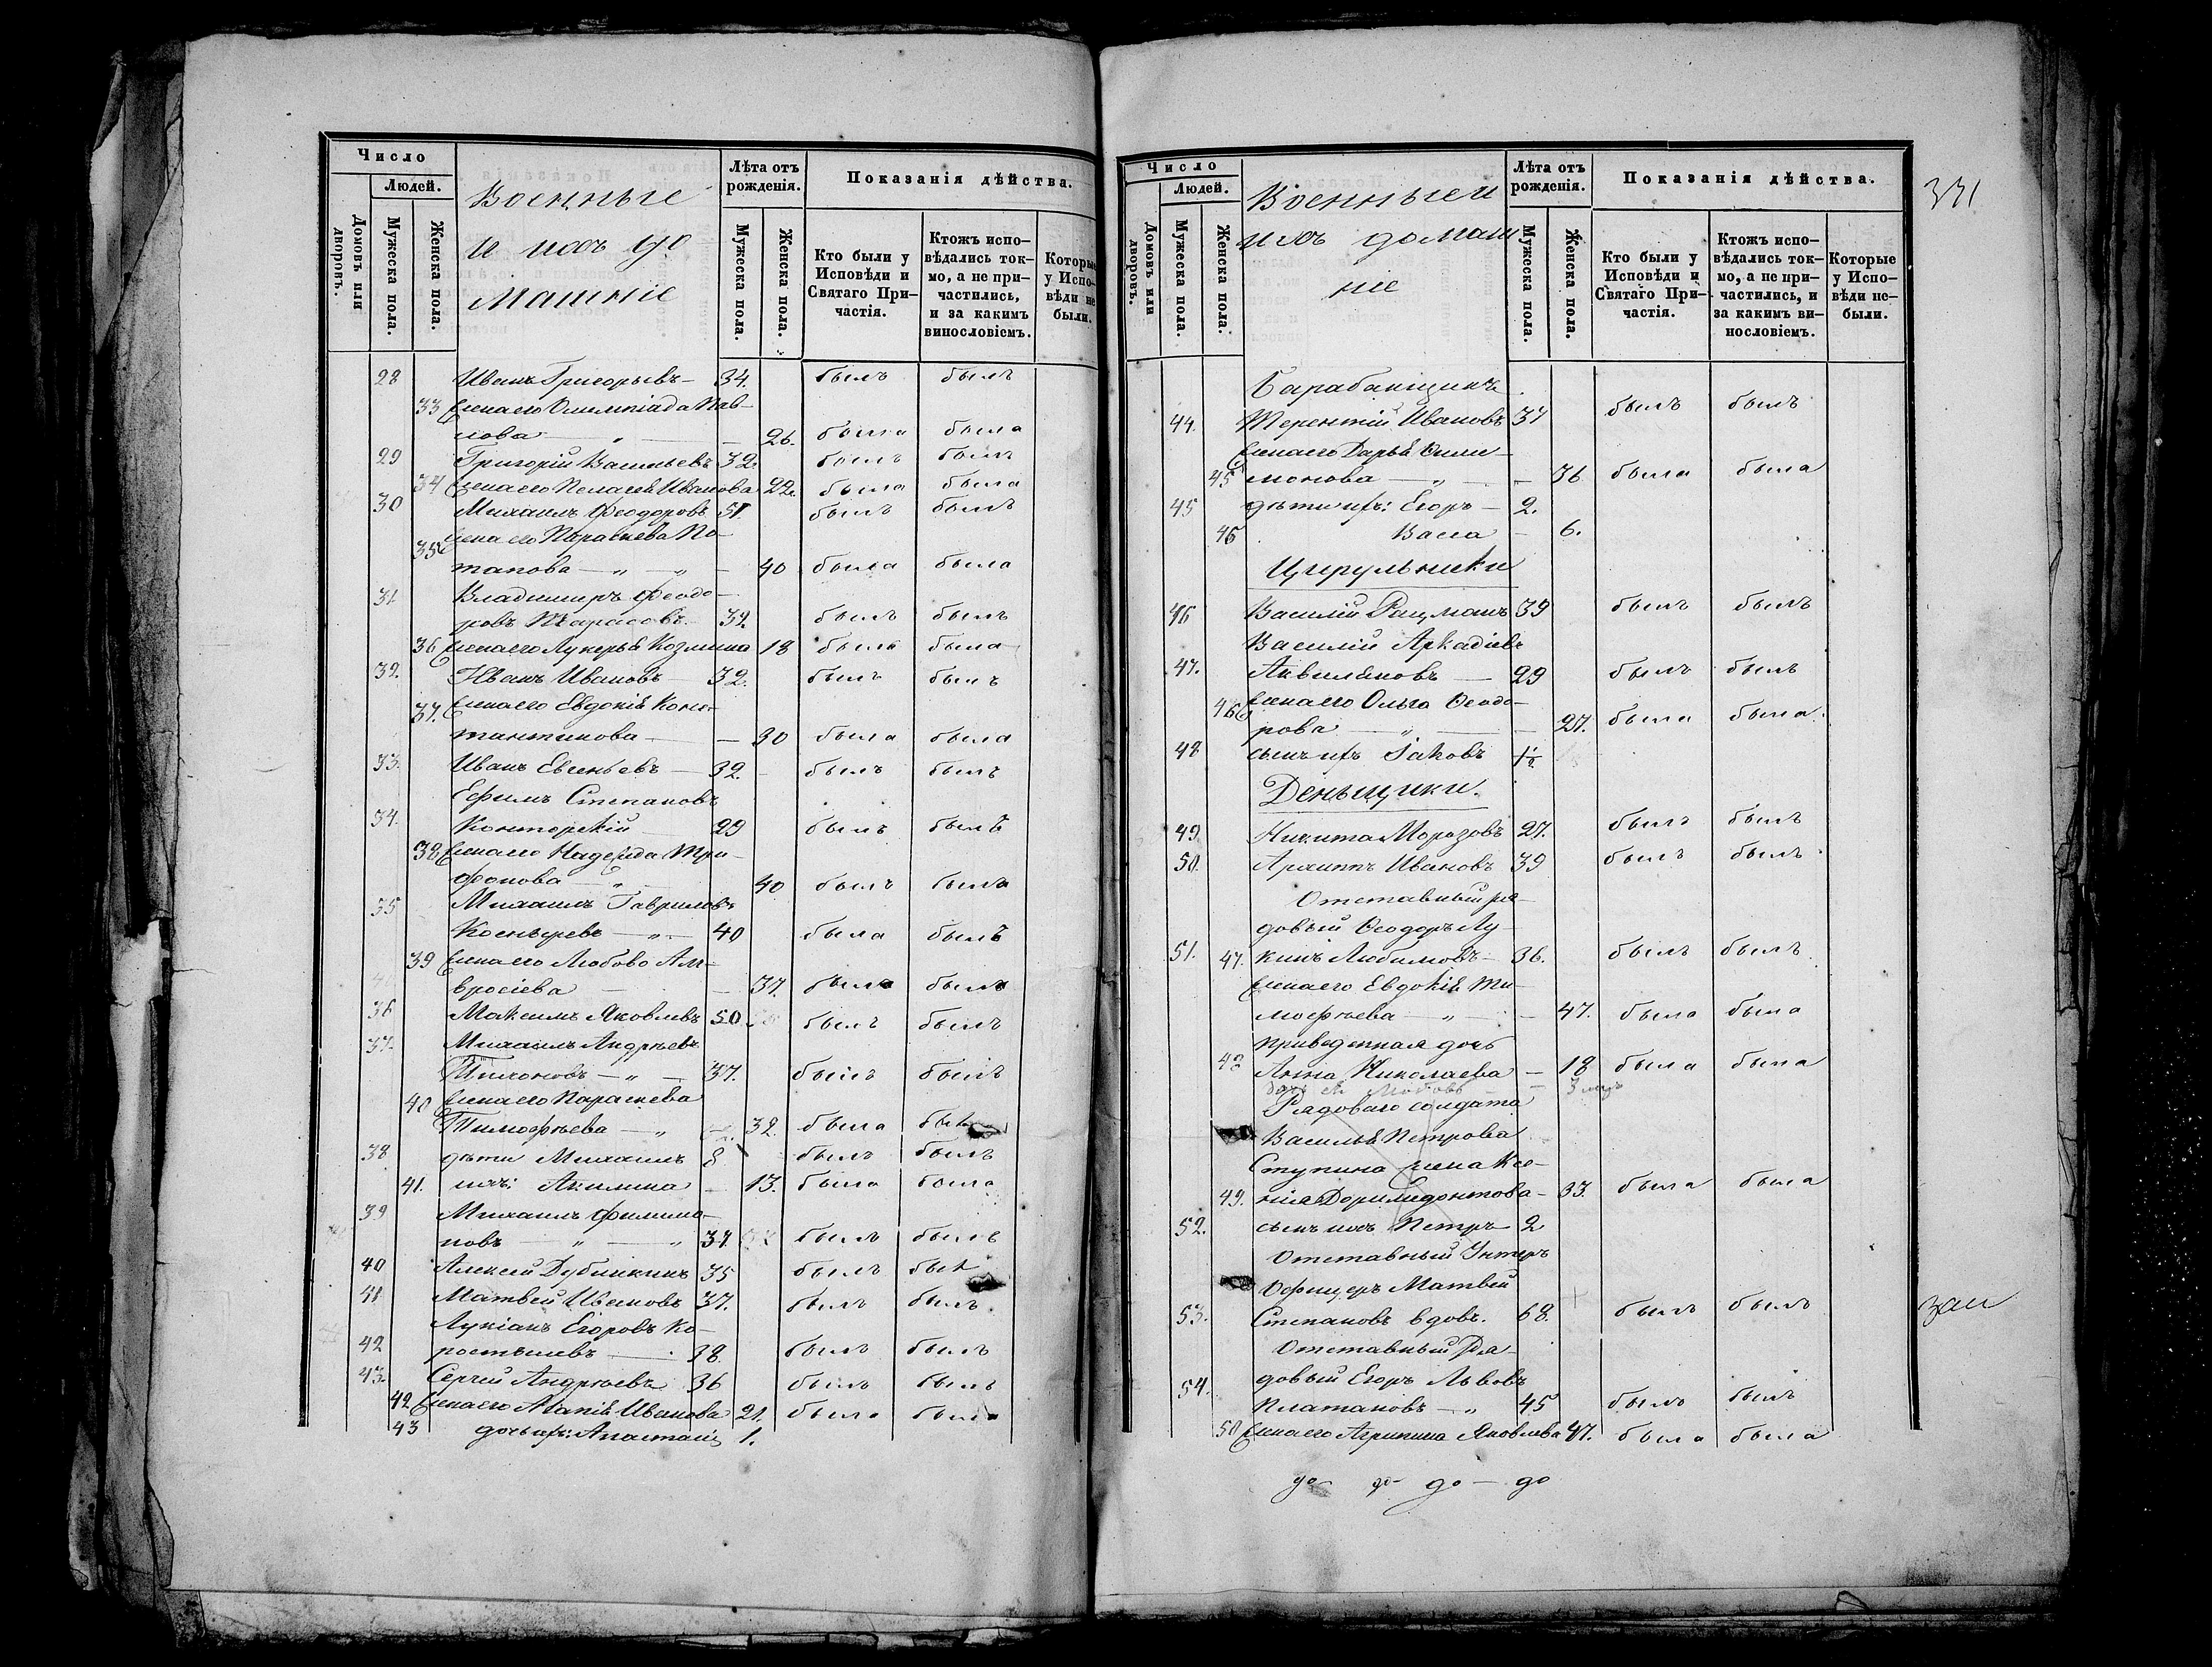 Число
Людей.
Домовъ или дворовъ.
Мужеска пола.
Женска пола.
Военные
и ихъ до
машніе
Лѣта отъ рожденія.
Мужеска пола.
Женска пола.
Показанія дѣйства.
Кто были у Исповѣди и Святаго Причастія.
Ктожъ исповѣдались токмо, а не причастились, и за какимъ винословіемъ.
Которые у Исповѣди не были.
28 Иванъ Григорьевъ — 34. былъ былъ
33 жена его Олимпіада Пав-
лова — „ — 26. была была
29 Григорій Васильевъ 32. былъ былъ
34 жена его Пелагѣя Иванова 22. была была
30 Михаилъ Феодоровъ 51. былъ былъ
35 жена его Параскева По-
тапова — „ — „ — 40 была была
31. Владиміръ Феодо-
ровъ Тарасовъ 39. былъ былъ
36 жена его Лукерья Козмина 18 была была
32. Иванъ Ивановъ — 32. былъ былъ
37. жена его Евдокія Конс-
тантинова — — 30 была была
33. Иванъ Евгеньевъ — 32. былъ былъ
Ефимъ Степановъ
34. Конторскій 29 былъ былъ
38 жена его Надежда Три-
фонова — „ 40. былъ была
35 Михаилъ Гавриловъ
— „ — 40 была былъ
39 жена его Любовь Ам-
вросіева — 37. была была
36 Максимъ Яковлевъ 50. былъ былъ
37. Михаилъ Андреевъ
Тихоновъ — „ — 37. былъ былъ
40 жена его Параскева
Тимофѣева — „ 32. была
38 дѣти Михаилъ 8 былъ былъ
41. ихъ: Акилина — 13. была была
39 Михаилъ Филимо-
новъ — „ — „ 37. былъ былъ
40 Алексѣй Дубинкинъ 35 былъ
41 Матвей Ивановъ 37. былъ былъ
Лукіанъ Егоровъ Ко-
42 ростелевъ — 38 былъ былъ
43. Сергей Андреевъ 36 былъ былъ
42 жена его Агапія Иванова 21. была была
43 дочь ихъ: Анастасія 1.
331
Число
Людей.
Домовъ или дворовъ.
Мужеска пола.
Женска пола.
Военные и
ихъ домаш
ніе
Лѣта отъ рожденія.
Мужеска пола.
Женска пола.
Показанія дѣйства.
Кто были у Исповѣди и Святаго Причастія.
Ктожъ исповѣдались токмо, а не причастились, и за какимъ винословіемъ.
Которые у Исповѣди не были.
Барабанщикъ
44. Терентій Ивановъ 37 былъ былъ
жена его Дарья Фили-
45 монова — „ — 36. была была
45 дѣти ихъ: Егоръ — 2.
46 Васса — 6.
Цирульники
46 Василій Рацманъ 39 былъ былъ
Василій Аркадіевъ
47. Аквиляновъ — 29 былъ былъ
жена его Ольга Феодо-
46 рова — „ — 27. была была
48 сынъ ихъ Іаковъ 1½
Деньщики.
49. Никита Морозовъ 27. былъ былъ
50. Архипъ Ивановъ 39 былъ былъ
Отставный ря-
довый Феодоръ Лу-
51. 47. кинъ Любимовъ — 36. былъ былъ
жена его Евдокія Ти-
мофѣева — „ — 47. была была
приведенная дочь
48 Анна Николаева — 18 была была
Любовь — 3 мѣц
Рядоваго солдата
Василья Петрова
Ступина жена Ксе-
49. нія Доримедонтова — 33. была была
52. сынъ ихъ Петръ 2
Отставный Унтеръ
Офицеръ Матвей
53. Степановъ вдовъ. 68. былъ былъ
Отставный Ря-
54. довый Егоръ Львовъ
Платановъ — „ 45 былъ былъ
50 жена его Агрипина Яковлева 47. была была
до до — до — до